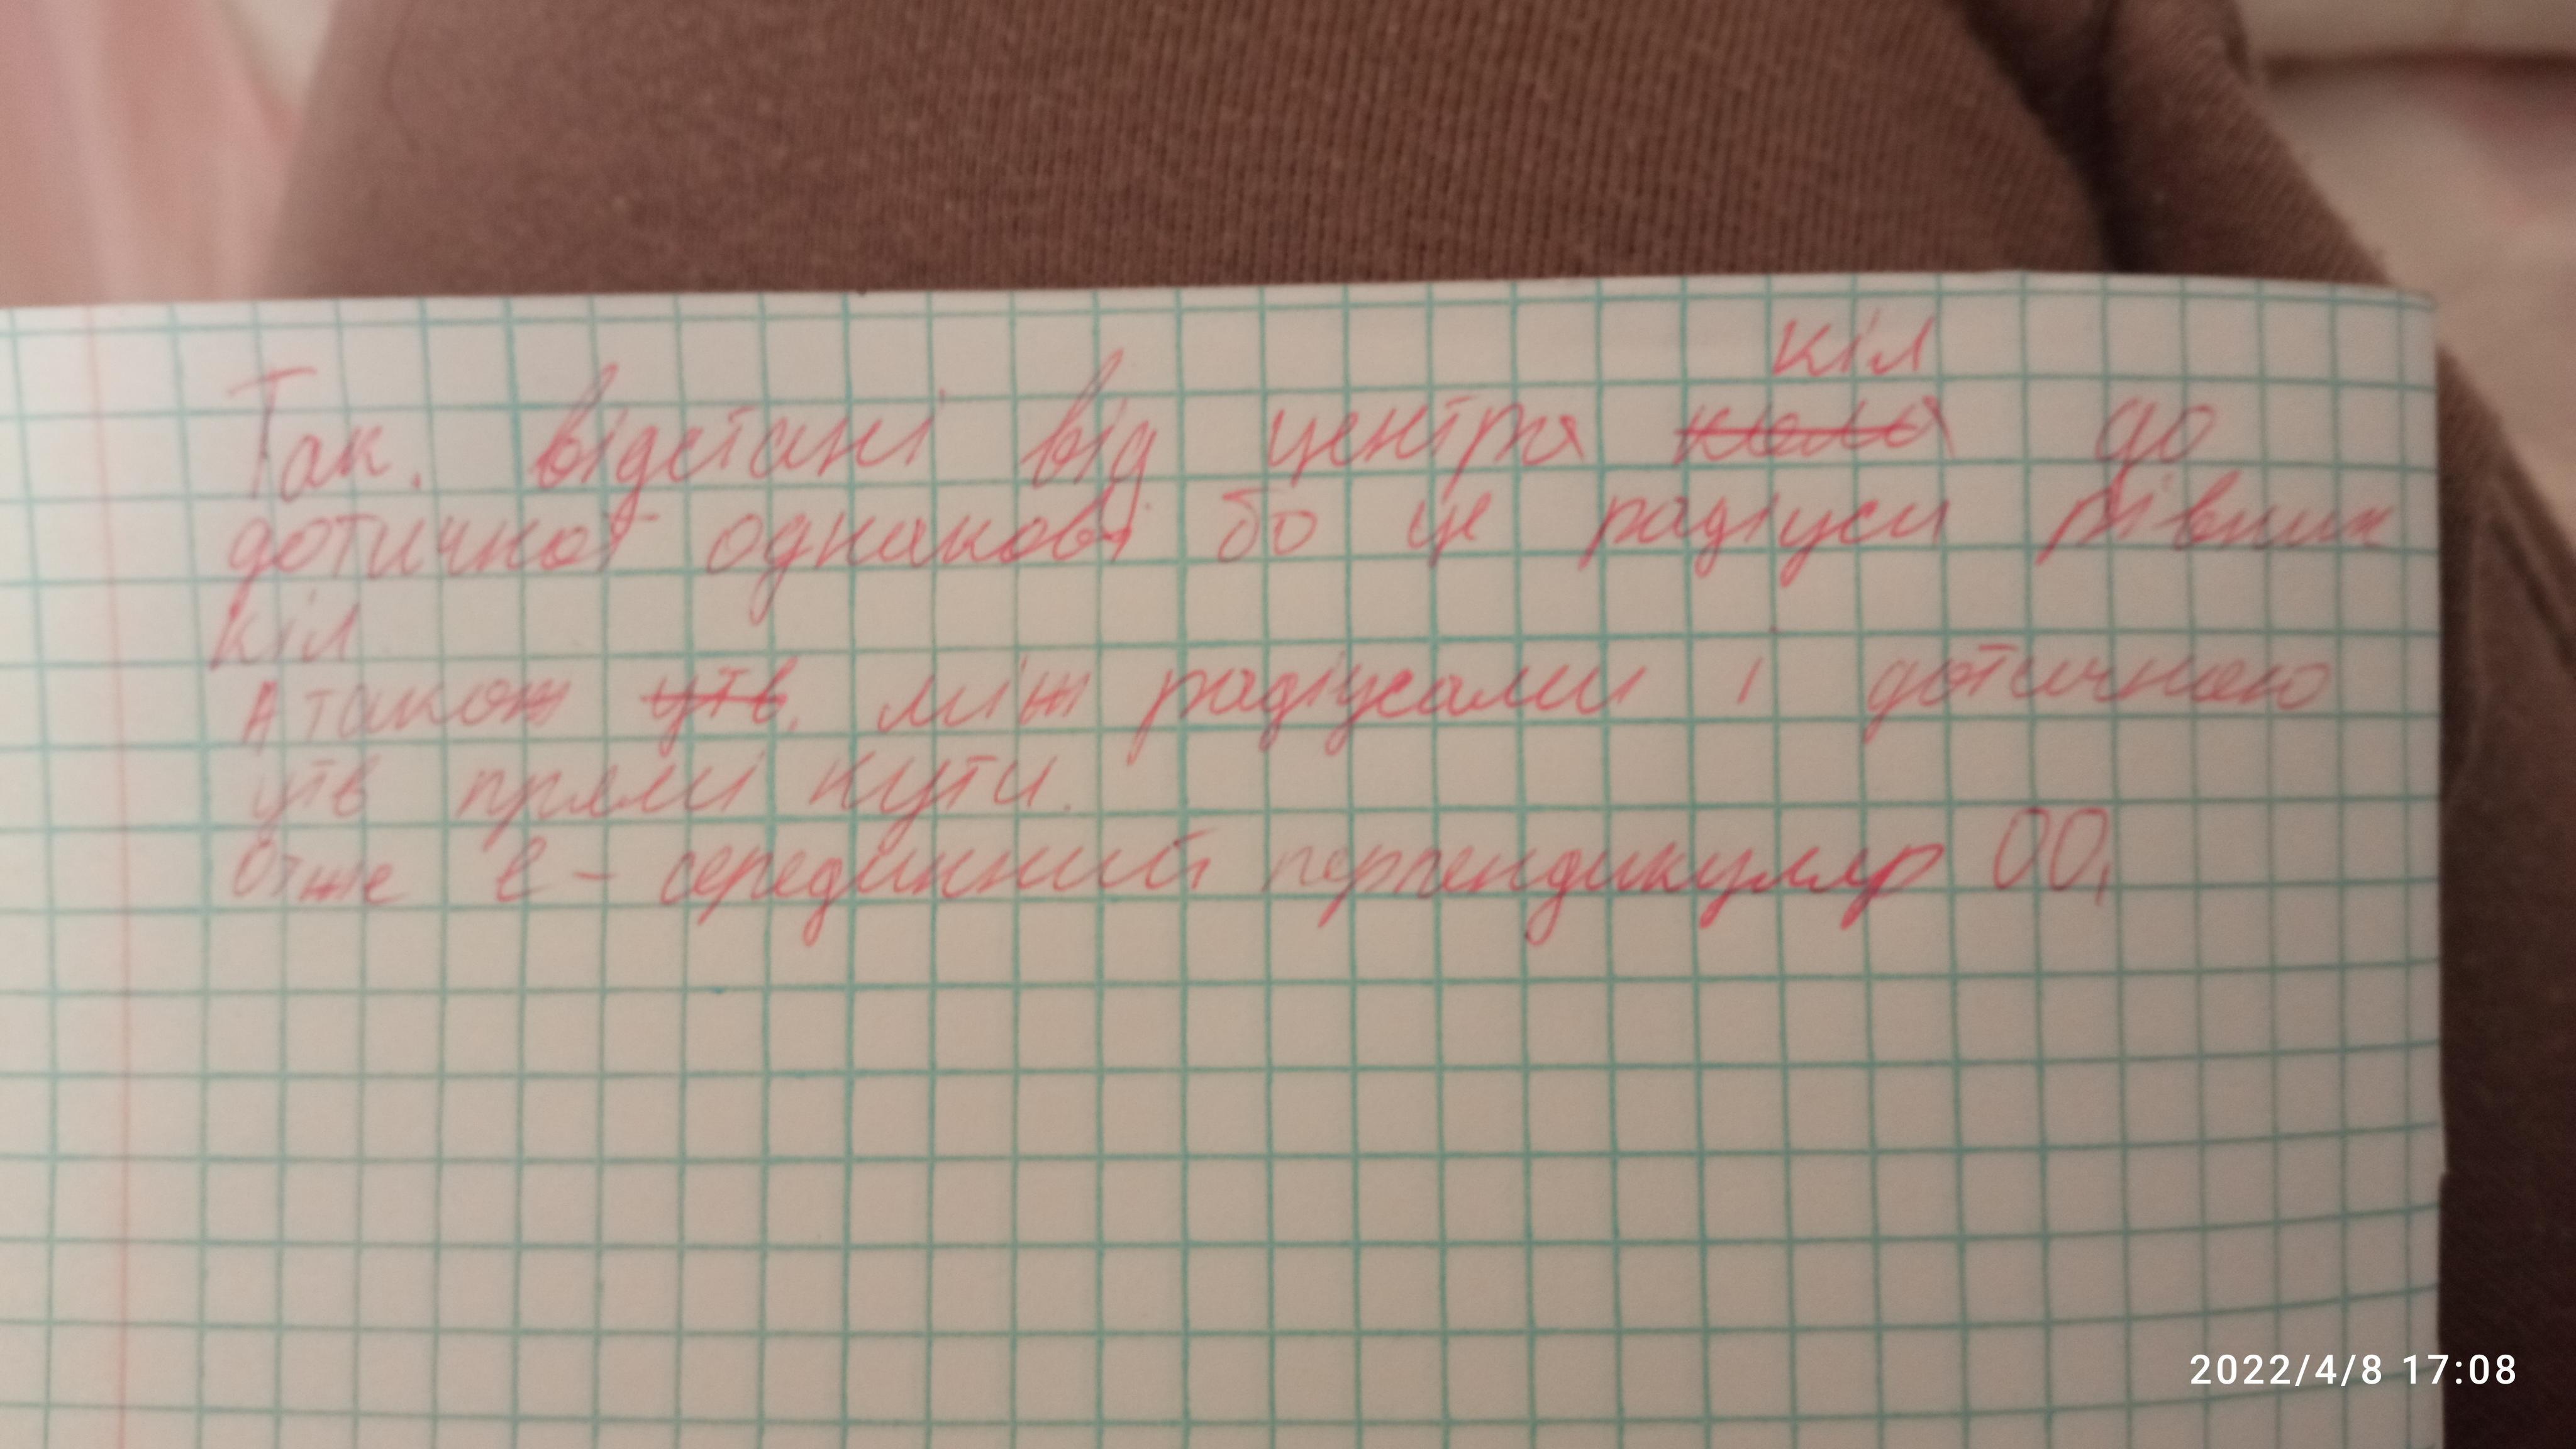 кіл
Так. відстані від центра кола до
дотичної однакові бо це радіуси рівних
кіл
А також утв. між радіусами і дотичною
утв прямі кути.
Отже l - серединний перпендикуляр OO₁
2022/4/8 17:08